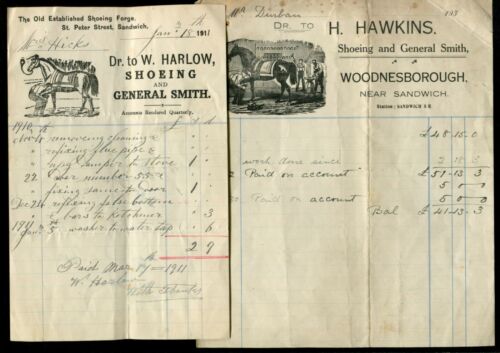 The Old Established Shoeing Forge.
St. Peter Street, Sandwich.
Jany 18th 1911
Mrs Hicks
Dr. to W. HARLOW,
SHOEING
AND
GENERAL SMITH.
Accounts Rendered Quarterly.
1910 £ s d
removing cleaning &
refixing flue pipe &
new damper to stove 1
22
fixing 1
Dec 24 refixing false bottom
& bars to kitchener 3
1911
Jan 5 washer to water tap 6
2 9
Paid Mar 1911
W. Harlow
With thanks
Mr Durban
193
DR. TO H. HAWKINS,
Shoeing and General Smith,
WOODNESBOROUGH,
NEAR SANDWICH.
Station: SANDWICH S.E.
£ 48-15.0
work done since 2 18 3
Paid on account £ 51-13.3
5 0 0
Paid on account 5 0 0
Bal £ 41-13.3